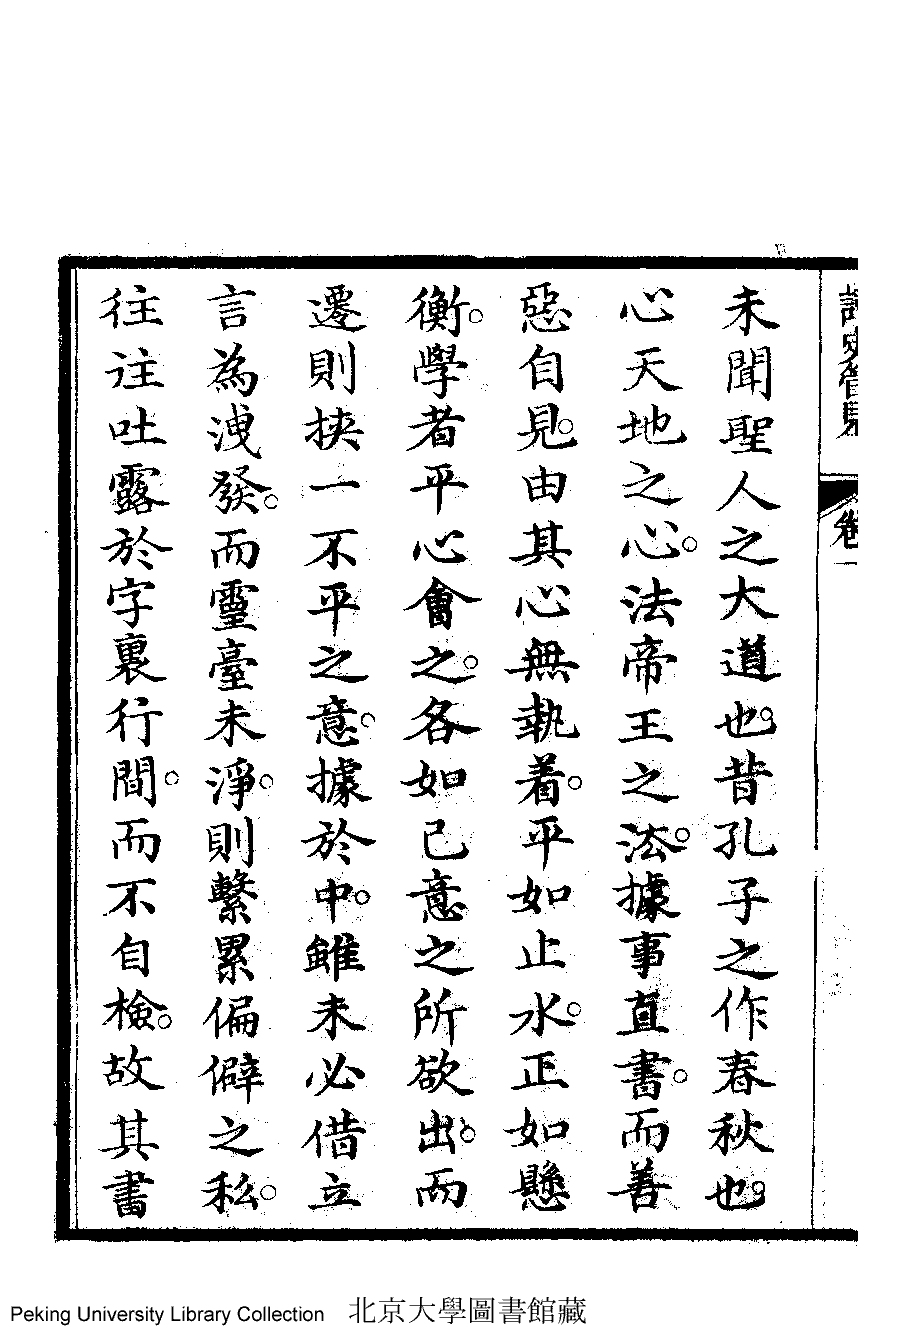 讀史管見 卷一
未聞聖人之大道也。昔孔子之作春秋也。
心天地之心。法帝王之法。據事直書。而善
惡自見。由其心無執着。平如止水。正如懸
衡。學者平心會之。各如己意之所欲出。而
遷則挾一不平之意。據於中。雖未必借立
言為洩發。而靈臺未淨。則繫累偏僻之私。
往往吐露於字裏行間。而不自檢。故其書
Peking University Library Collection 北京大學圖書館藏